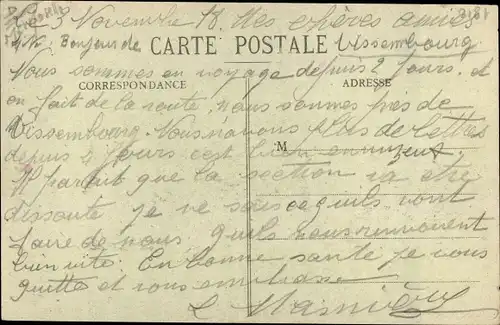 Le 3 Novembre 18. Mes chères amies
Bonjour de CARTE POSTALE Wissembourg
Nous sommes en voyage depuis 2 Jours. et
CORRESPONDANCE ADRESSE
on fait de la route, nous sommes près de
Wissembourg. Nous n'avons plus de lettres
M
depuis 4 Jours c'est bien ennuyeux.
Il parait que la section va être
dissoute je ne sais ce qu'ils vont
faire de nous qu'ils nous renvoient
bien vite. En bonne santé je vous
quitte et vous embrasse